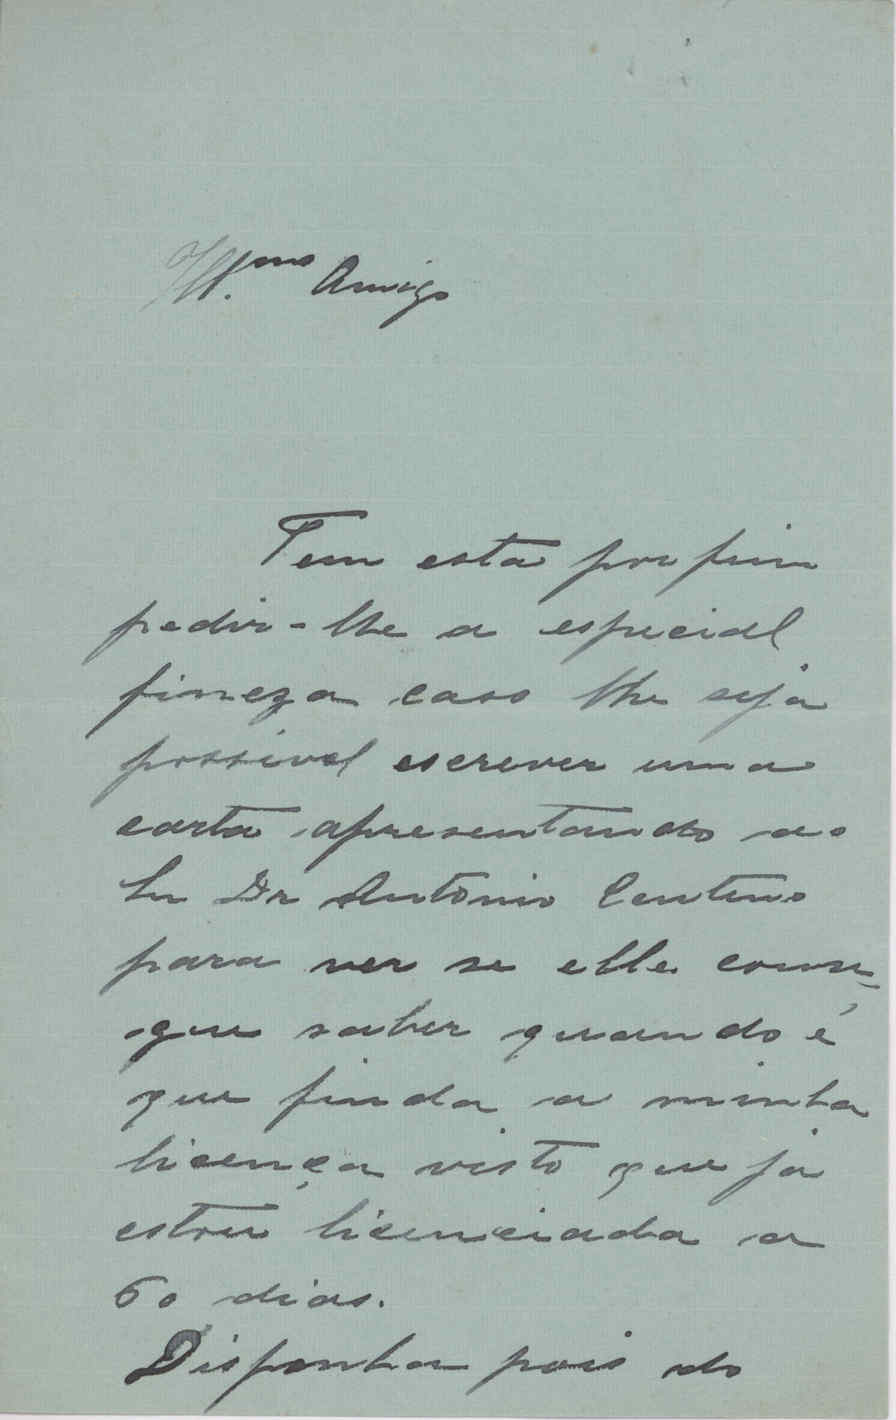 Ill.mo Amigo
Tem esta por fim
pedir-lhe a especial
fineza caso lhe seja
possivel escrever uma
carta apresentando ao
Sr Dr Antonio Centeno
para ver se elle conse-
gue saber quando é
que finda a minha
licença visto que já
estou licenciada a
60 dias.
Disponha pois do